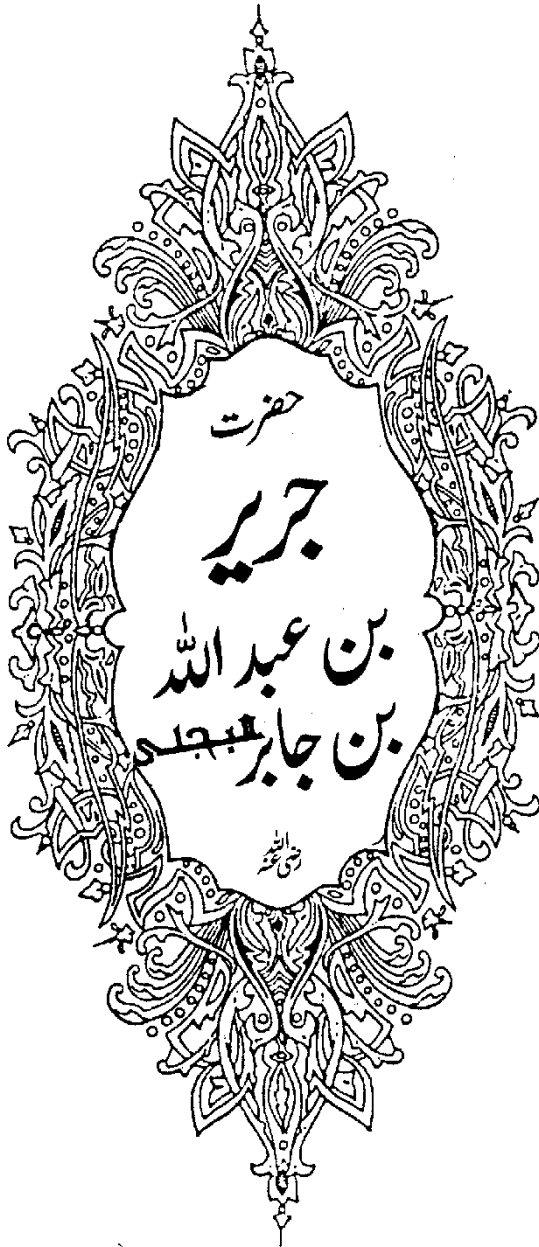 حضرت
جریر
بن عبد اللہ
بن جابر البجلی
رضی اللہ عنہ